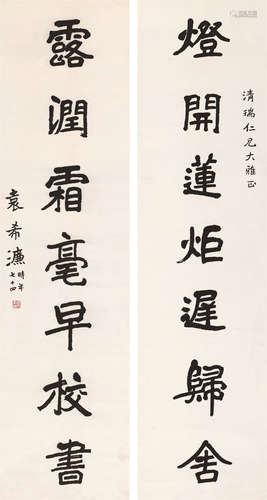 燈開蓮炬遲歸舍
清瑞仁兄大雅正
露潤霜毫早校書
袁希濂時年七十四